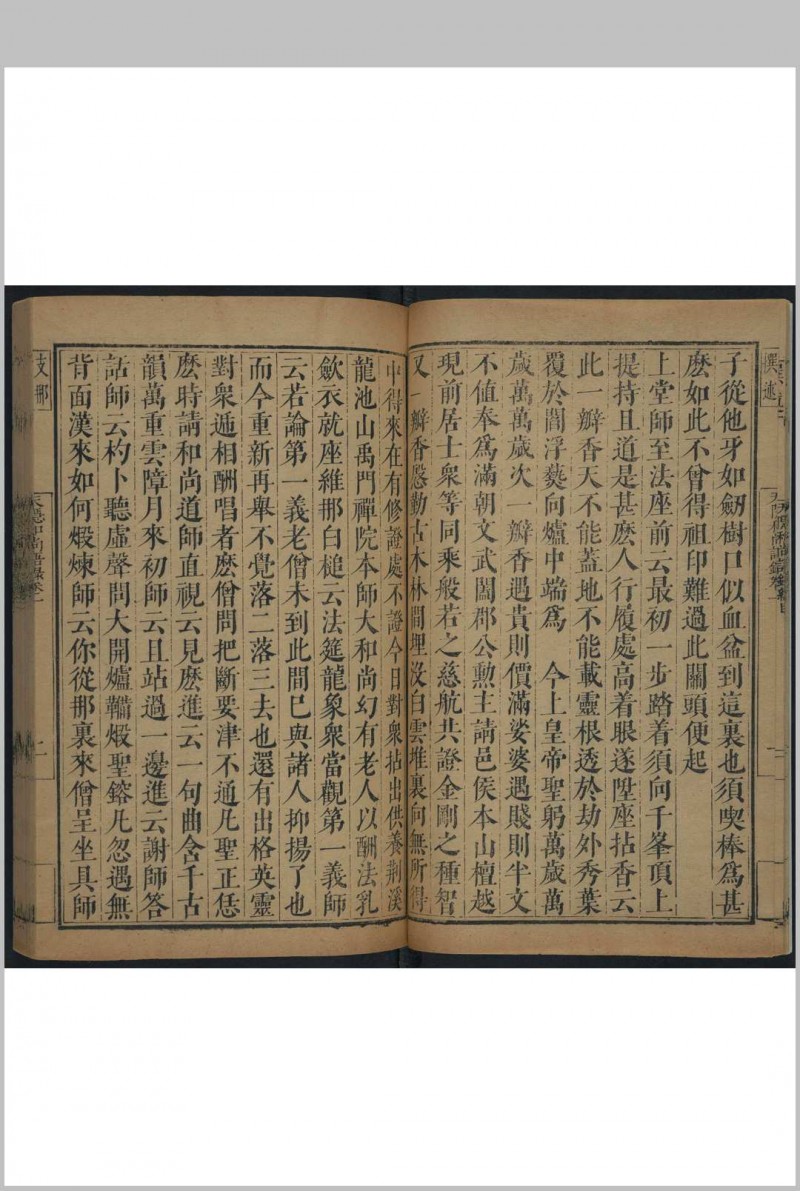 撰述
子從他牙如劒樹口似血盆到這裏也須喫棒爲甚
麽如此不曾得祖印難過此關頭便起
上堂師至法座前云最初一步踏着須向千峯頂上
提持且道是甚麽人行履處高着眼遂陞座拈香云
此一瓣香天不能蓋地不能載靈根透於劫外秀葉
覆於閻浮爇向爐中端爲 今上皇帝聖躬萬歲萬
歲萬萬歲次一瓣香遇貴則價滿娑婆遇賤則半文
不值奉爲滿朝文武闔郡公勲主請邑侯本山檀越
現前居士衆等同乘般若之慈航共證金剛之種智
又一瓣香慇勤古木林間埋没白雲堆裏向無所得
中得來在有修證處不證今日對衆拈出供養荆溪
龍池山禹門禪院本師大和尚幻有老人以酬法乳
歛衣就座維那白槌云法筵龍象衆當觀第一義師
云若論第一義老僧未到此間巳與諸人抑揚了也
而今重新再舉不覺落二落三去也還有出格英靈
對衆遞相酬唱者麽僧問把斷要津不通凡聖正恁
麽時請和尚道師直視云見麽進云一句曲含千古
韻萬重雲障月來初師云且站過一邊進云謝師答
話師云杓卜聽虛聲問大開爐鞴煅聖鎔凡忽遇無
背面漢來如何煅煉師云你從那裏來僧呈坐具師
支那
天隱和尚語錄卷一
二